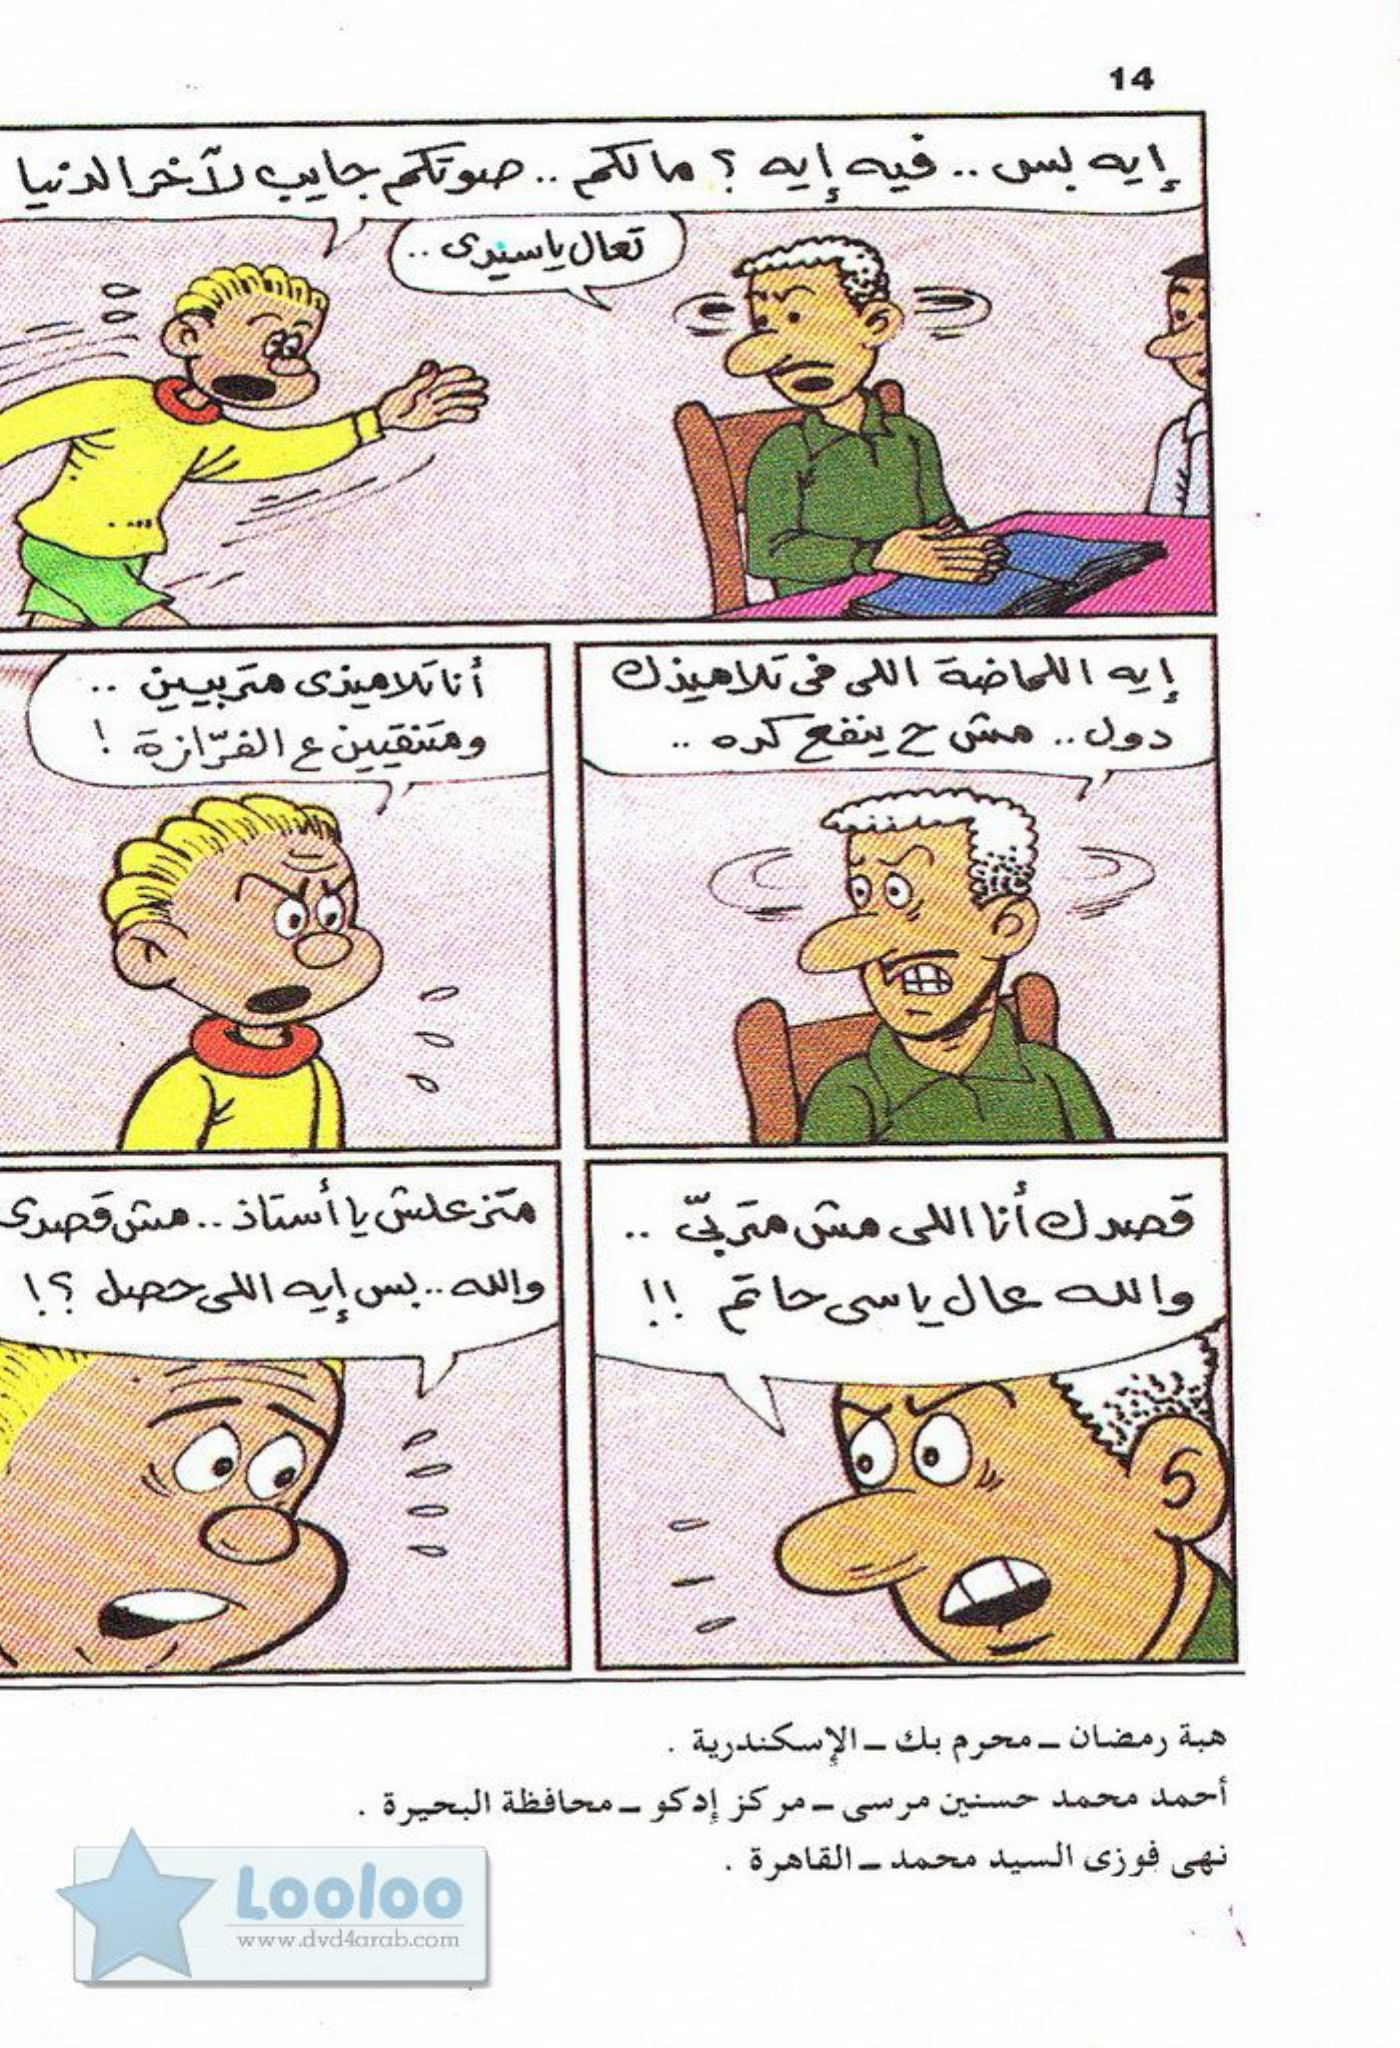 14
إيه بس .. فيه إيه ؟ مالكم .. صوتكم جايب لآخر الدنيا
تعال ياسيدى ..
إيه اللماضة اللى فى تلاميذك
دول .. مش ح ينفع كده ..
أنا تلاميذى متربيين ..
ومتنقيين ع الفرّازة !
قصدك أنا اللى مش متربىّ ..
والله عال ياسى حاتم !!
متزعلش يا أستاذ .. مش قصدى
والله .. بس إيه اللى حصل ؟!
هبة رمضان ــ محرم بك ــ الإسكندرية .
أحمد محمد حسنين مرسى ــ مركز إدكو ــ محافظة البحيرة .
نهى فوزى السيد محمد ــ القاهرة .
Looloo
www.dvd4arab.com